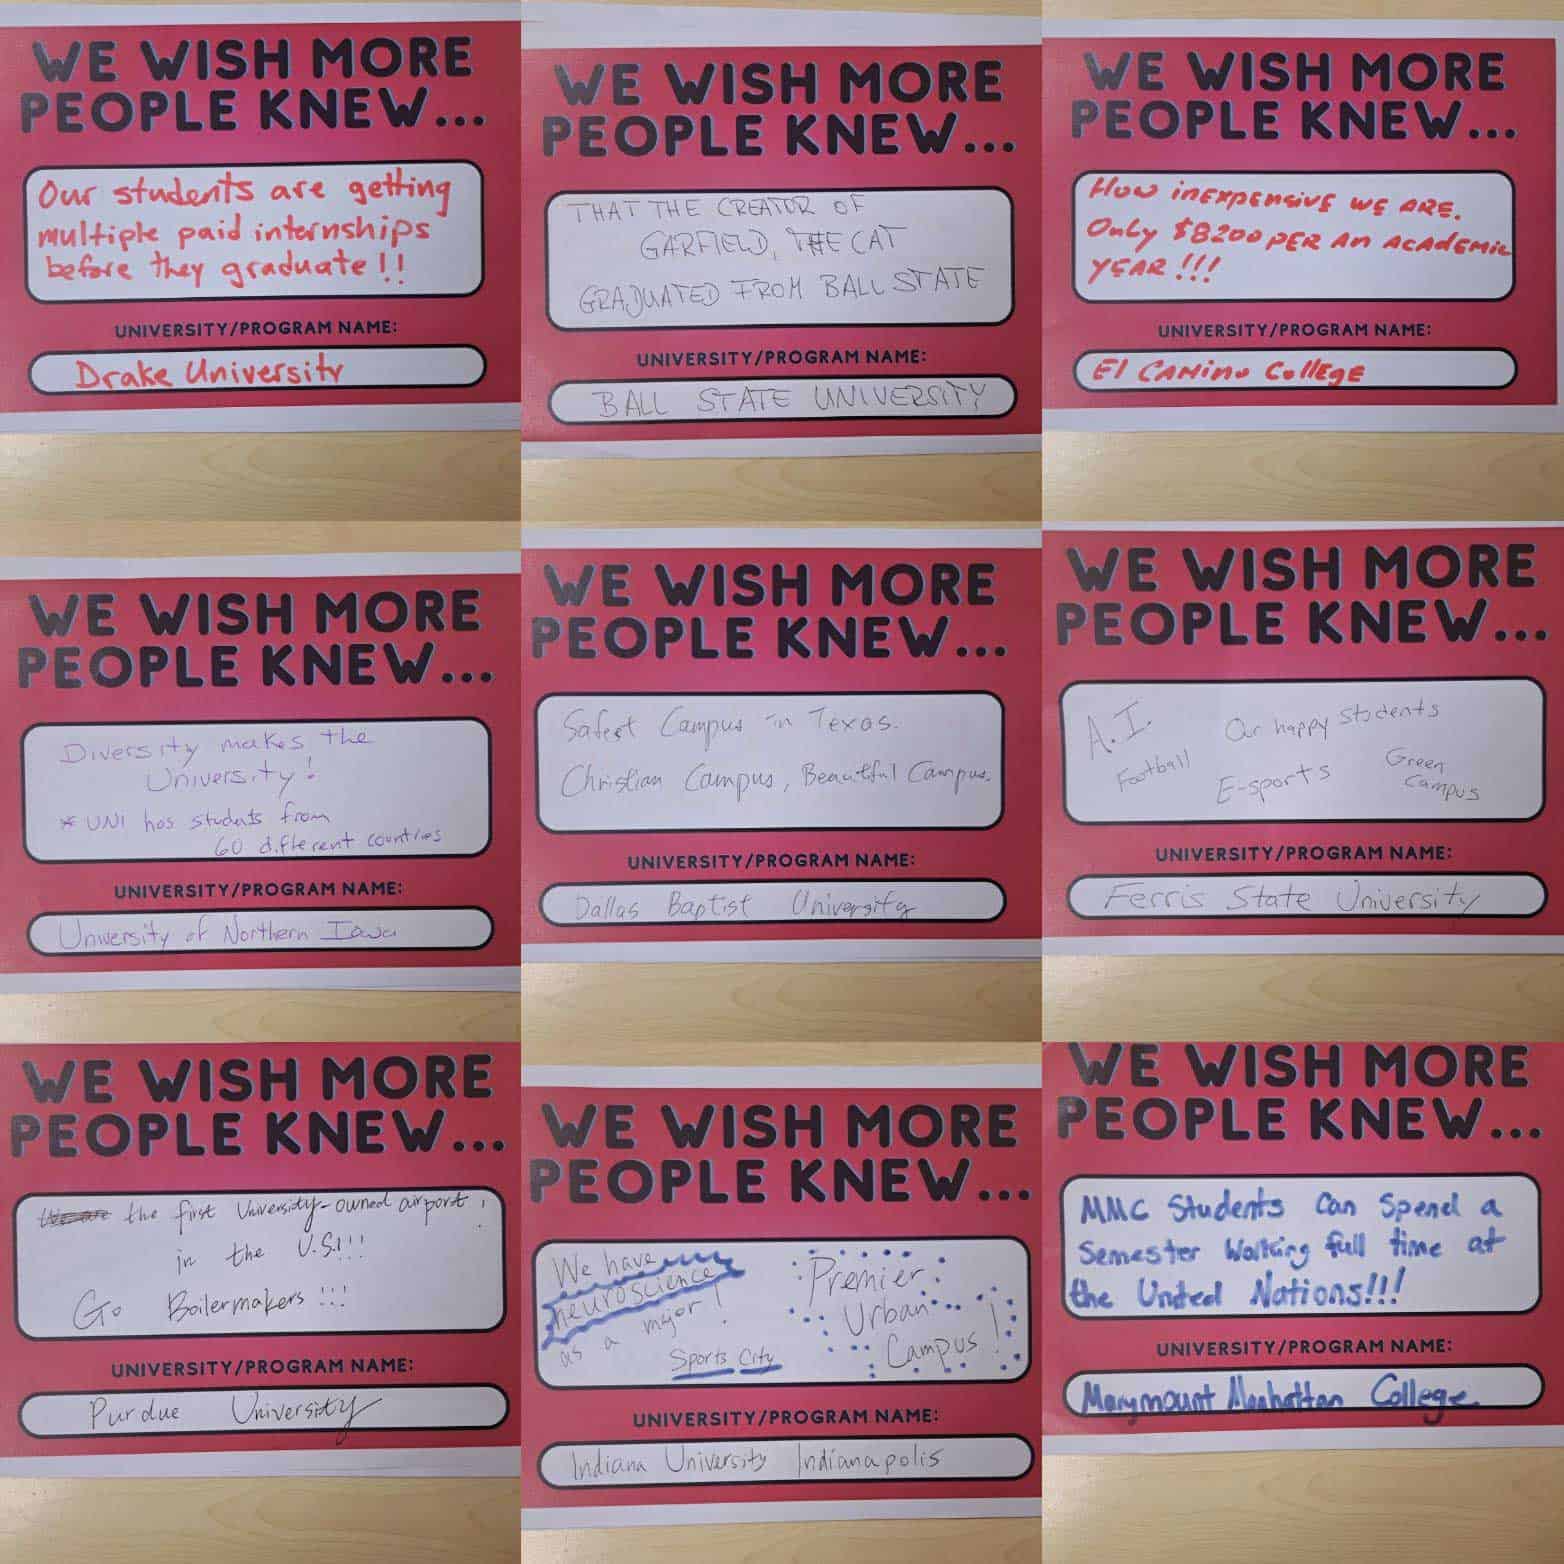 WE WISH MORE
PEOPLE KNEW...
Our students are getting
multiple paid internships
before they graduate!!
UNIVERSITY/PROGRAM NAME:
Drake University
WE WISH MORE
PEOPLE KNEW...
THAT THE CREATOR OF
GARFIELD, THE CAT
GRADUATED FROM BALL STATE
UNIVERSITY/PROGRAM NAME:
BALL STATE UNIVERSITY
WE WISH MORE
PEOPLE KNEW...
How inExpensivE wE ARE.
Only $8200 PER An ACADEMIC
YEAR!!!
UNIVERSITY/PROGRAM NAME:
El CAMino CollEgE
WE WISH MORE
PEOPLE KNEW...
Diversity makes the
University!
* UNI has students from
60 different countries
UNIVERSITY/PROGRAM NAME:
University of Northern Iowa
WE WISH MORE
PEOPLE KNEW...
Safest Campus in Texas.
Christian Campus, Beautiful Campus.
UNIVERSITY/PROGRAM NAME:
Dallas Baptist University
WE WISH MORE
PEOPLE KNEW...
A.I.
Our happy Students
Football
E-sports
Green
Campus
UNIVERSITY/PROGRAM NAME:
Ferris State University
WE WISH MORE
PEOPLE KNEW...
the first University-owned airport!
in the U.S!!!
Go Boilermakers!!!
UNIVERSITY/PROGRAM NAME:
Purdue University
WE WISH MORE
PEOPLE KNEW...
We have
neuroscience
as a major!
Sports City
Premier
Urban
Campus!
UNIVERSITY/PROGRAM NAME:
Indiana University Indianapolis
WE WISH MORE
PEOPLE KNEW...
MMC Students Can Spend a
Semester Working full time at
the United Nations!!!
UNIVERSITY/PROGRAM NAME:
Marymount Manhattan College